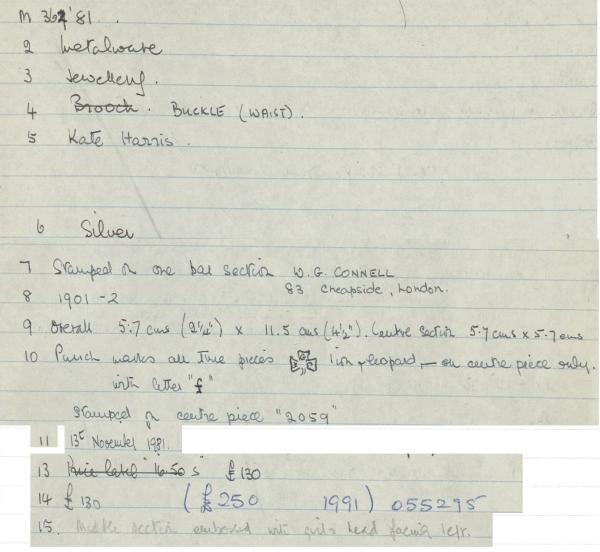 M 364 '81.
2 Metalware
3 Jewellery.
4 Brooch. BUCKLE (WAIST).
5 Kate Harris.
6 Silver
7 Stamped on one bar section W. G. CONNELL
83 Cheapside, London.
8 1901-2
9 Overall 5.7 cms (2¼") x 11.5 cms (4½"). Centre section 5.7 cms x 5.7 cms
10 Punch marks all three pieces lion, leopard, — on centre piece only.
with letter "f"
Stamped on centre piece "2059"
11 13th November 1981.
13 Price label 16.50 s £130
14 £130 (£250 1991) 055295
15. Middle section embossed with girls head facing left.